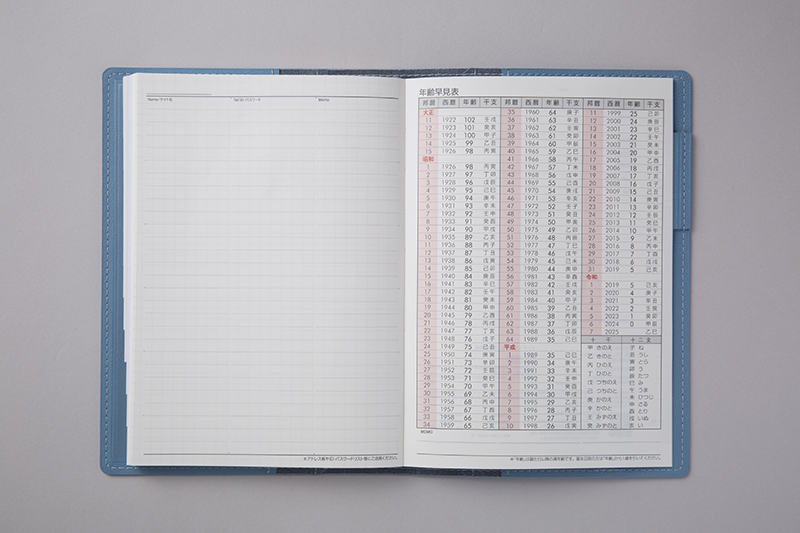 Name/サイト名 Tel/ID・パスワード Memo
※アドレス帳やID・パスワードリスト等にご活用ください。
年齢早見表
邦暦 西暦 年齢 干支 邦暦 西暦 年齢 干支 邦暦 西暦 年齢 干支
大正
11 1922 102 壬戌
12 1923 101 癸亥
13 1924 100 甲子
14 1925 99 乙丑
15 1926 98 丙寅
昭和
1 1926 98 丙寅
2 1927 97 丁卯
3 1928 96 戊辰
4 1929 95 己巳
5 1930 94 庚午
6 1931 93 辛未
7 1932 92 壬申
8 1933 91 癸酉
9 1934 90 甲戌
10 1935 89 乙亥
11 1936 88 丙子
12 1937 87 丁丑
13 1938 86 戊寅
14 1939 85 己卯
15 1940 84 庚辰
16 1941 83 辛巳
17 1942 82 壬午
18 1943 81 癸未
19 1944 80 甲申
20 1945 79 乙酉
21 1946 78 丙戌
22 1947 77 丁亥
23 1948 76 戊子
24 1949 75 己丑
25 1950 74 庚寅
26 1951 73 辛卯
27 1952 72 壬辰
28 1953 71 癸巳
29 1954 70 甲午
30 1955 69 乙未
31 1956 68 丙申
32 1957 67 丁酉
33 1958 66 戊戌
34 1959 65 己亥
35 1960 64 庚子
36 1961 63 辛丑
37 1962 62 壬寅
38 1963 61 癸卯
39 1964 60 甲辰
40 1965 59 乙巳
41 1966 58 丙午
42 1967 57 丁未
43 1968 56 戊申
44 1969 55 己酉
45 1970 54 庚戌
46 1971 53 辛亥
47 1972 52 壬子
48 1973 51 癸丑
49 1974 50 甲寅
50 1975 49 乙卯
51 1976 48 丙辰
52 1977 47 丁巳
53 1978 46 戊午
54 1979 45 己未
55 1980 44 庚申
56 1981 43 辛酉
57 1982 42 壬戌
58 1983 41 癸亥
59 1984 40 甲子
60 1985 39 乙丑
61 1986 38 丙寅
62 1987 37 丁卯
63 1988 36 戊辰
64 1989 35 己巳
平成
1 1989 35 己巳
2 1990 34 庚午
3 1991 33 辛未
4 1992 32 壬申
5 1993 31 癸酉
6 1994 30 甲戌
7 1995 29 乙亥
8 1996 28 丙子
9 1997 27 丁丑
10 1998 26 戊寅
11 1999 25 己卯
12 2000 24 庚辰
13 2001 23 辛巳
14 2002 22 壬午
15 2003 21 癸未
16 2004 20 甲申
17 2005 19 乙酉
18 2006 18 丙戌
19 2007 17 丁亥
20 2008 16 戊子
21 2009 15 己丑
22 2010 14 庚寅
23 2011 13 辛卯
24 2012 12 壬辰
25 2013 11 癸巳
26 2014 10 甲午
27 2015 9 乙未
28 2016 8 丙申
29 2017 7 丁酉
30 2018 6 戊戌
31 2019 5 己亥
令和
1 2019 5 己亥
2 2020 4 庚子
3 2021 3 辛丑
4 2022 2 壬寅
5 2023 1 癸卯
6 2024 0 甲辰
7 2025 乙巳
十干 十二支
甲 きのえ 子 ね
乙 きのと 丑 うし
丙 ひのえ 寅 とら
丁 ひのと 卯 う
戊 つちのえ 辰 たつ
己 つちのと 巳 み
庚 かのえ 午 うま
辛 かのと 未 ひつじ
壬 みずのえ 申 さる
癸 みずのと 酉 とり
戌 いぬ
亥 い
MEMO